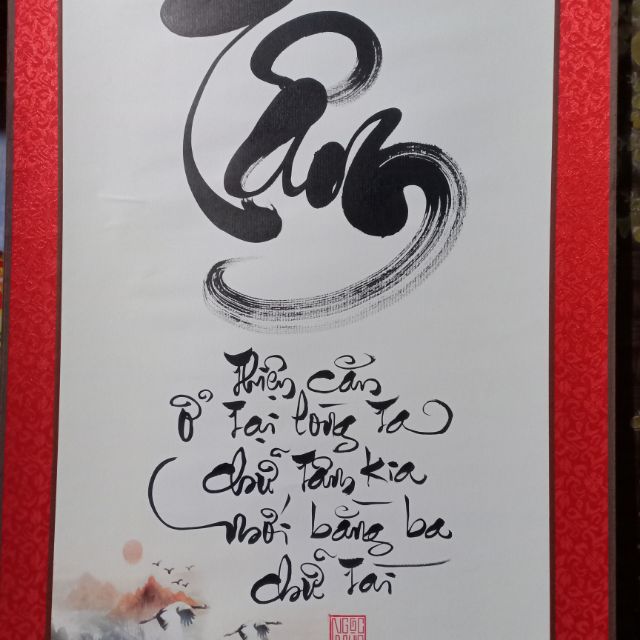 Tâm
Thiện căn
ở tại lòng ta
chữ Tâm kia
mới bằng ba
chữ Tài
NGỌC